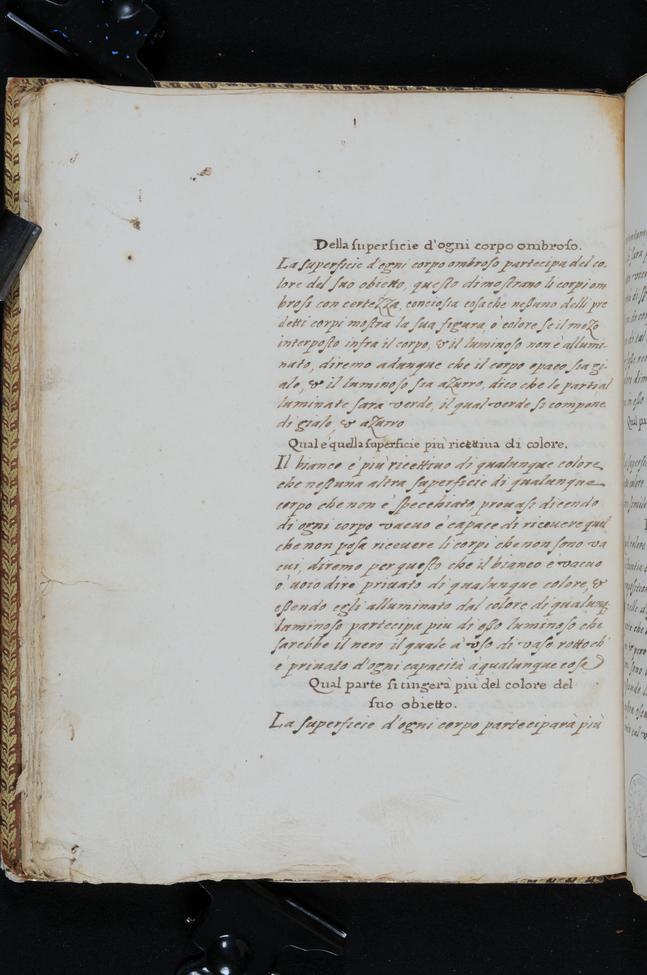 Della superficie d'ogni corpo ombroso.
La superficie d'ogni corpo ombroso partecipa del co-
lore del suo obietto, questo dimostrano li corpi om
brosi con certezza, conciosia cosache nessuno delli pre
detti corpi mostra la sua figura, o colore se il mezo
interposto infra il corpo, & il luminoso non è allumi-
nato, diremo adunque che il corpo opaco sia gi-
alo, & il luminoso sia azurro, dico che le parti al
luminate sara verde, il qual verde si compone
di gialo, & azurro
Qual è quella superficie più ricettiua di colore.
Il bianco è più ricettiuo di qualunque colore
che nessuna altra superficie di qualunque
corpo che non è specchiato, prouasi dicendo
di ogni corpo vacuo è capace di riceuere quel
che non posa riceuere li corpi che non sono va
cui, diremo per questo che il bianco è vacuo
o' voio dire priuato di qualunque colore, &
essendo egli alluminato dal colore di qualunq;
luminoso partecipa piu di esso luminoso che
sarebbe il nero il quale à vso di vaso rotto ch'
è priuato d'ogni capacità à qualunque cosa
Qual parte si tingerà più del colore del
suo obietto.
La superficie d'ogni corpo parteciparà più